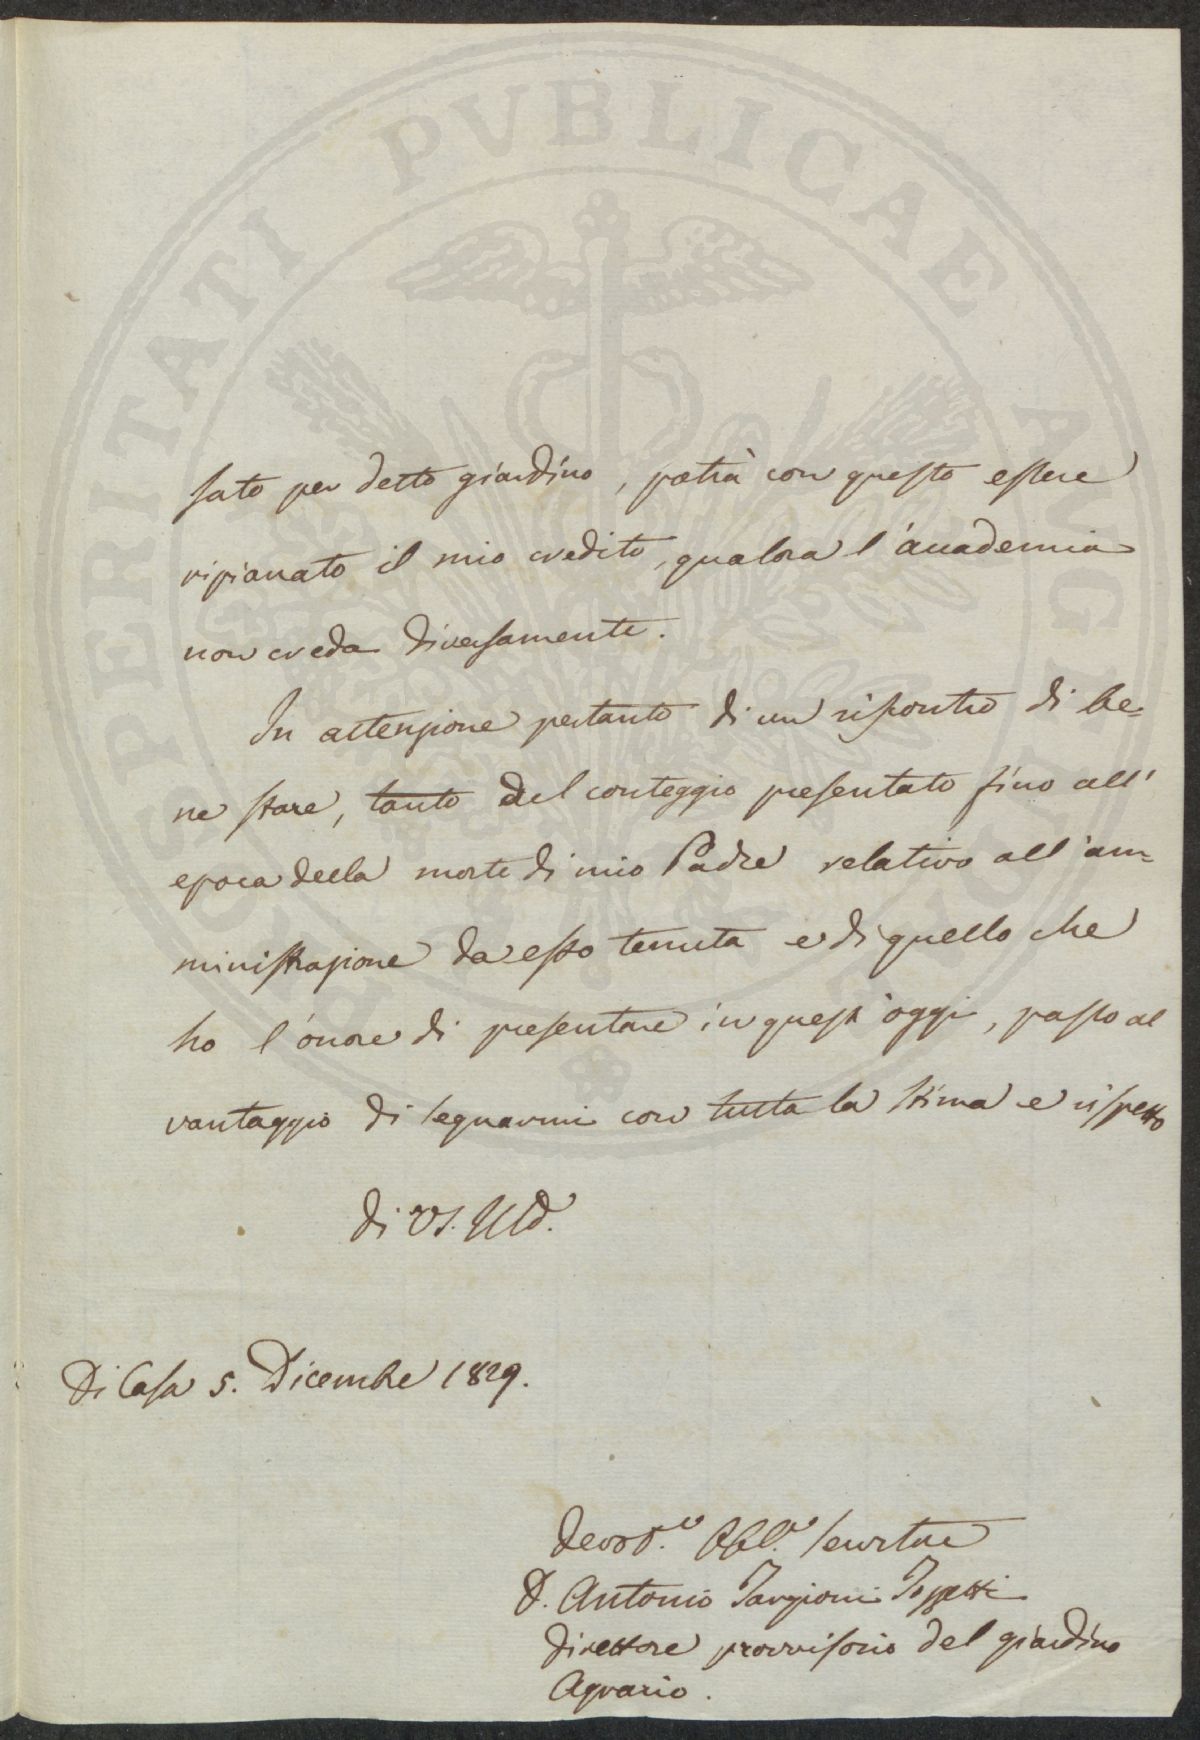 PROSPERITATI PVBLICAE AVGENDAE
sato per detto giardino, potrà con questo essere
ripianato il mio credito, qualora l'accademia
non creda diversamente.
In attenzione pertanto di un riscontro di be=
ne stare, tanto del conteggio presentato fino all'
epoca della morte di mio Padre relativo all'am=
ministrazione da esso tenuta e di quello che
ho l'onore di presentare in quest'oggi, passo al
vantaggio di segnarmi con tutta la stima e rispetto
di VS. Illd.
Di Casa 5. Dicembre 1829.
Devot.o Obl.o servitore
D. Antonio Targioni Tozzetti
Direttore provvisorio del giardino
Agrario.